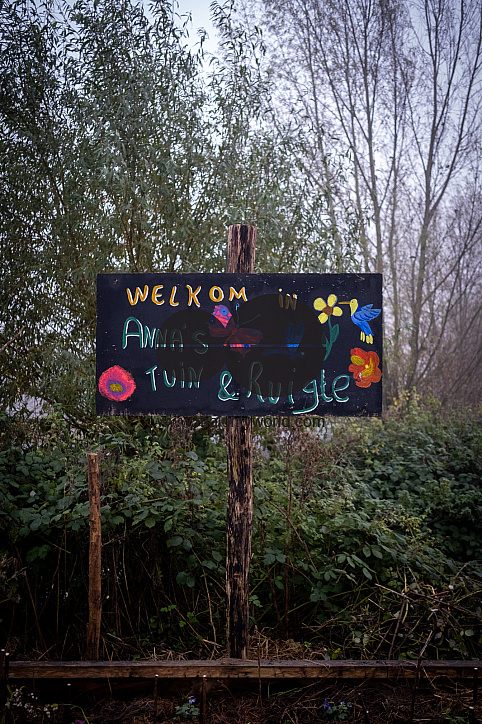 WELKOM in
ANNA'S
TUIN & Ruigte